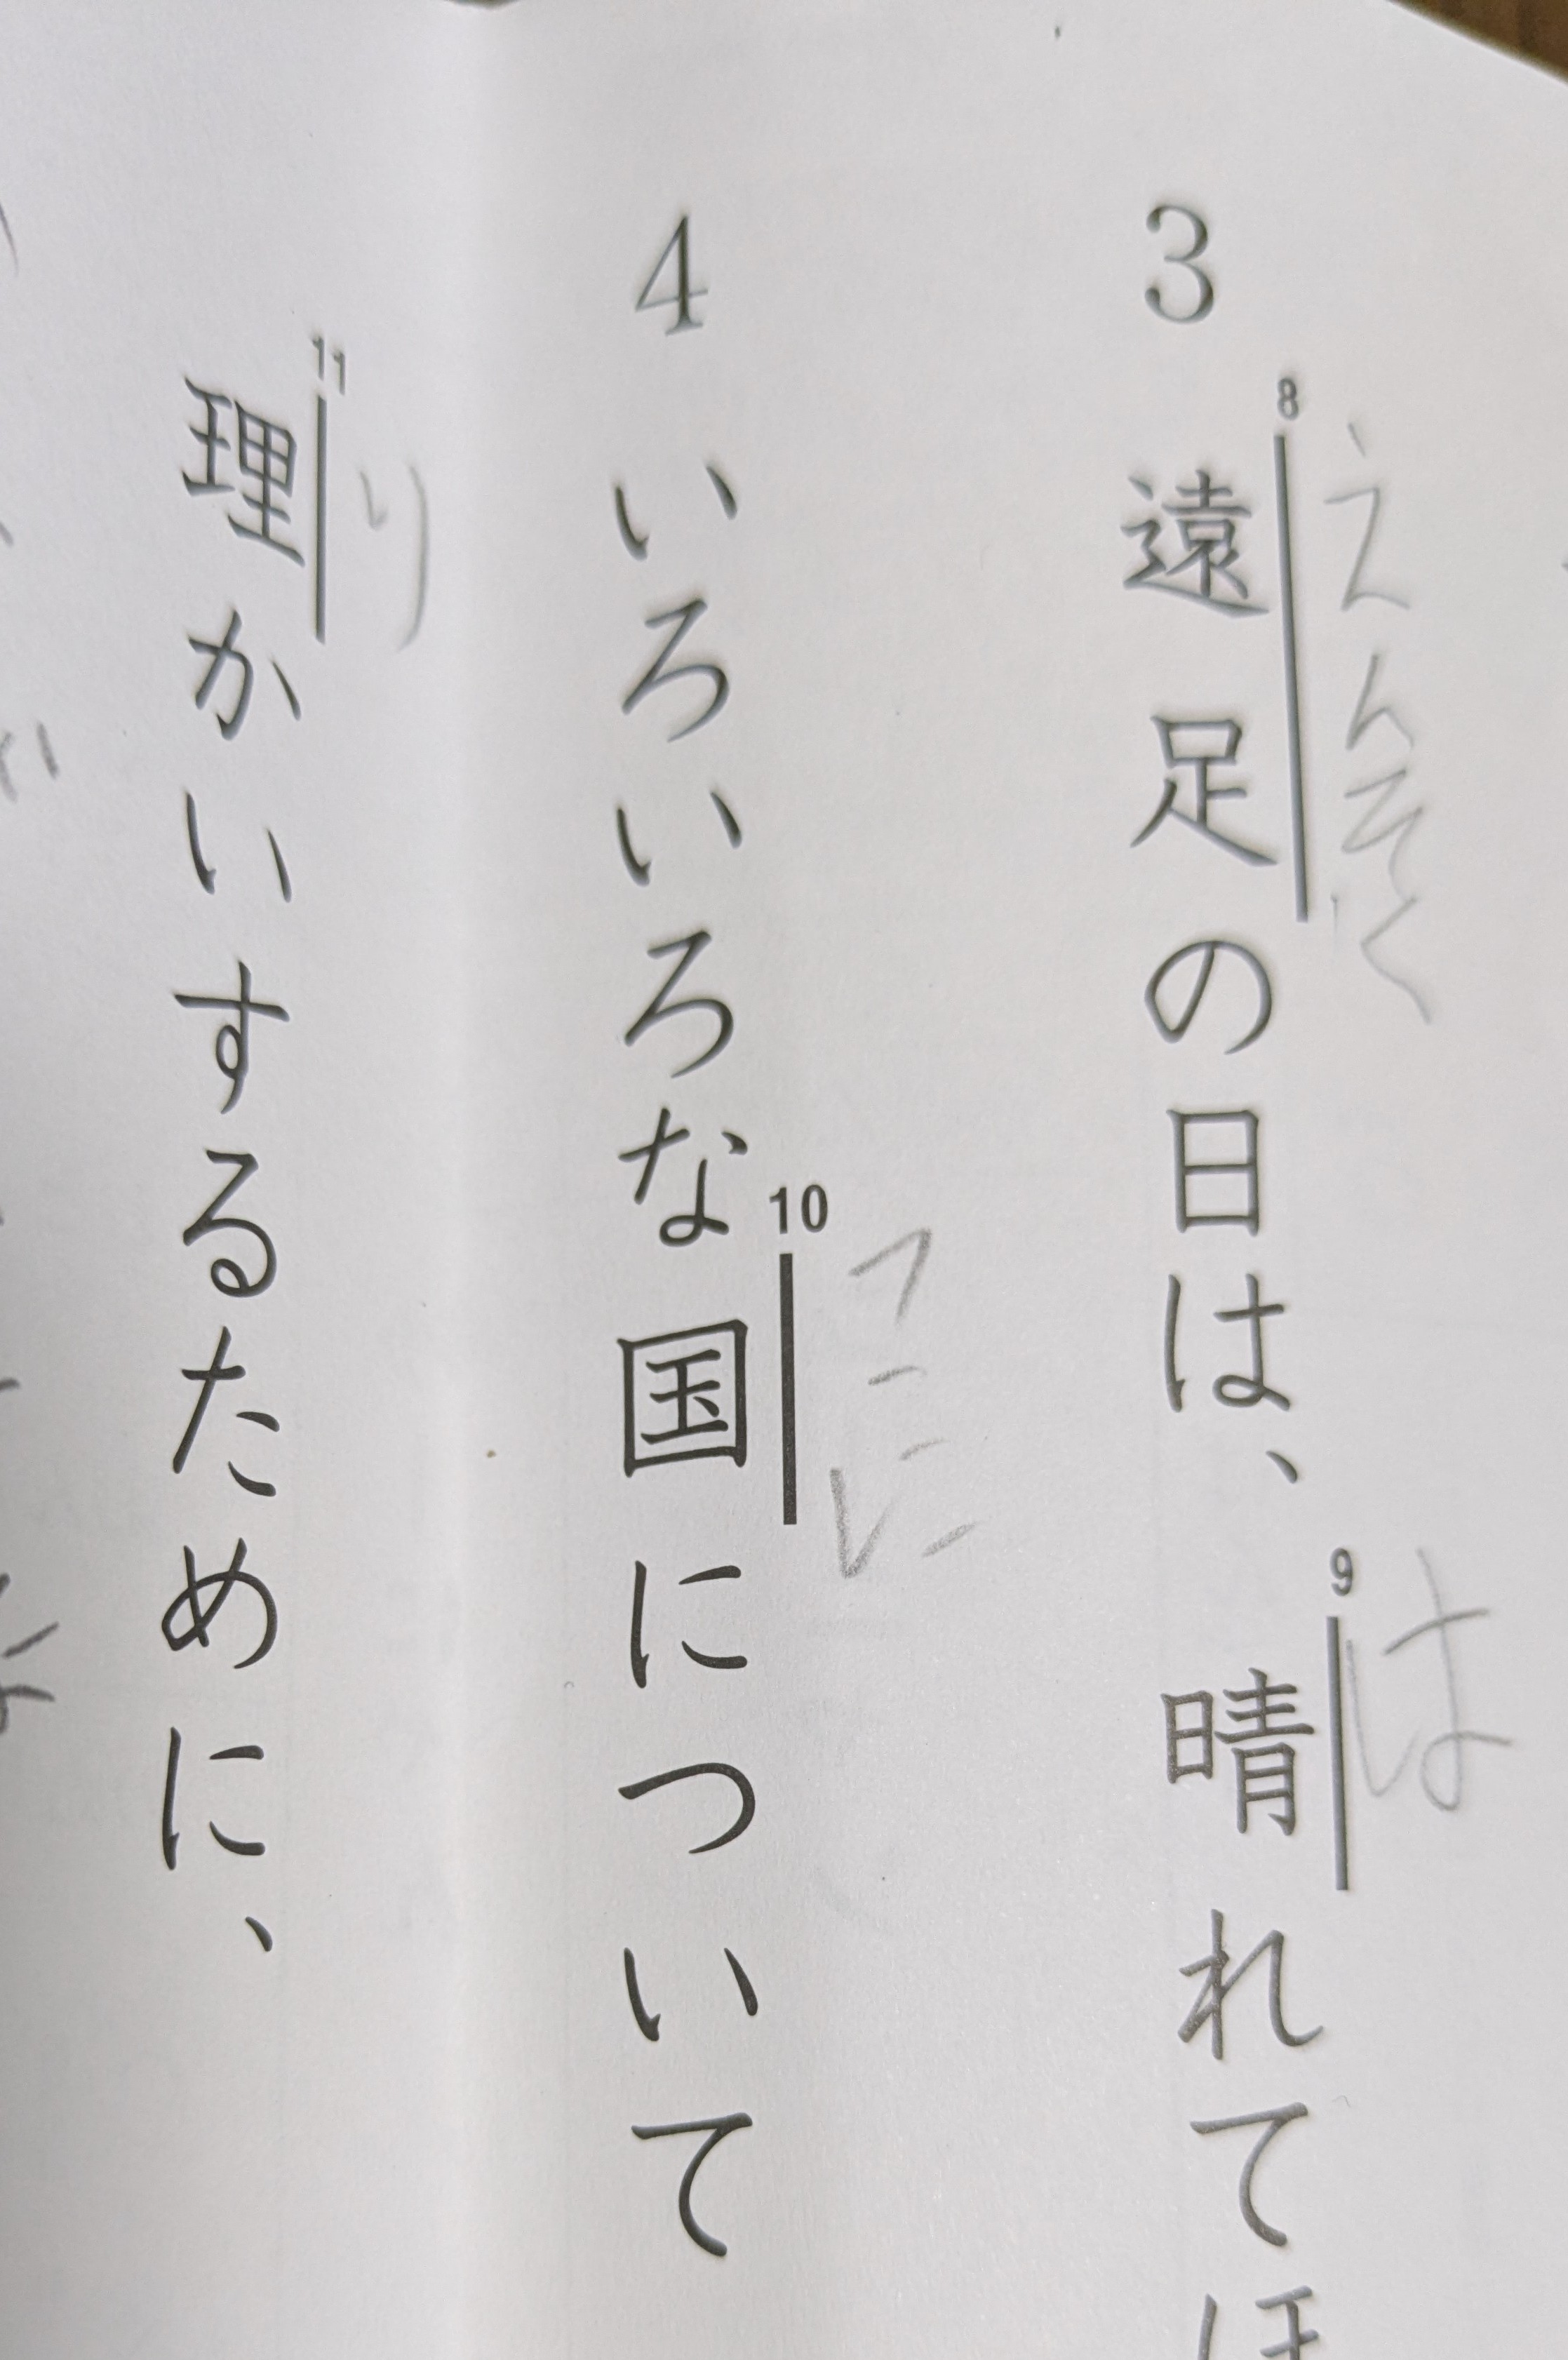 8 9
えんそく は
3 遠足の日は、晴れてほ
10
4 いろいろな国について
11
り
理かいするために、